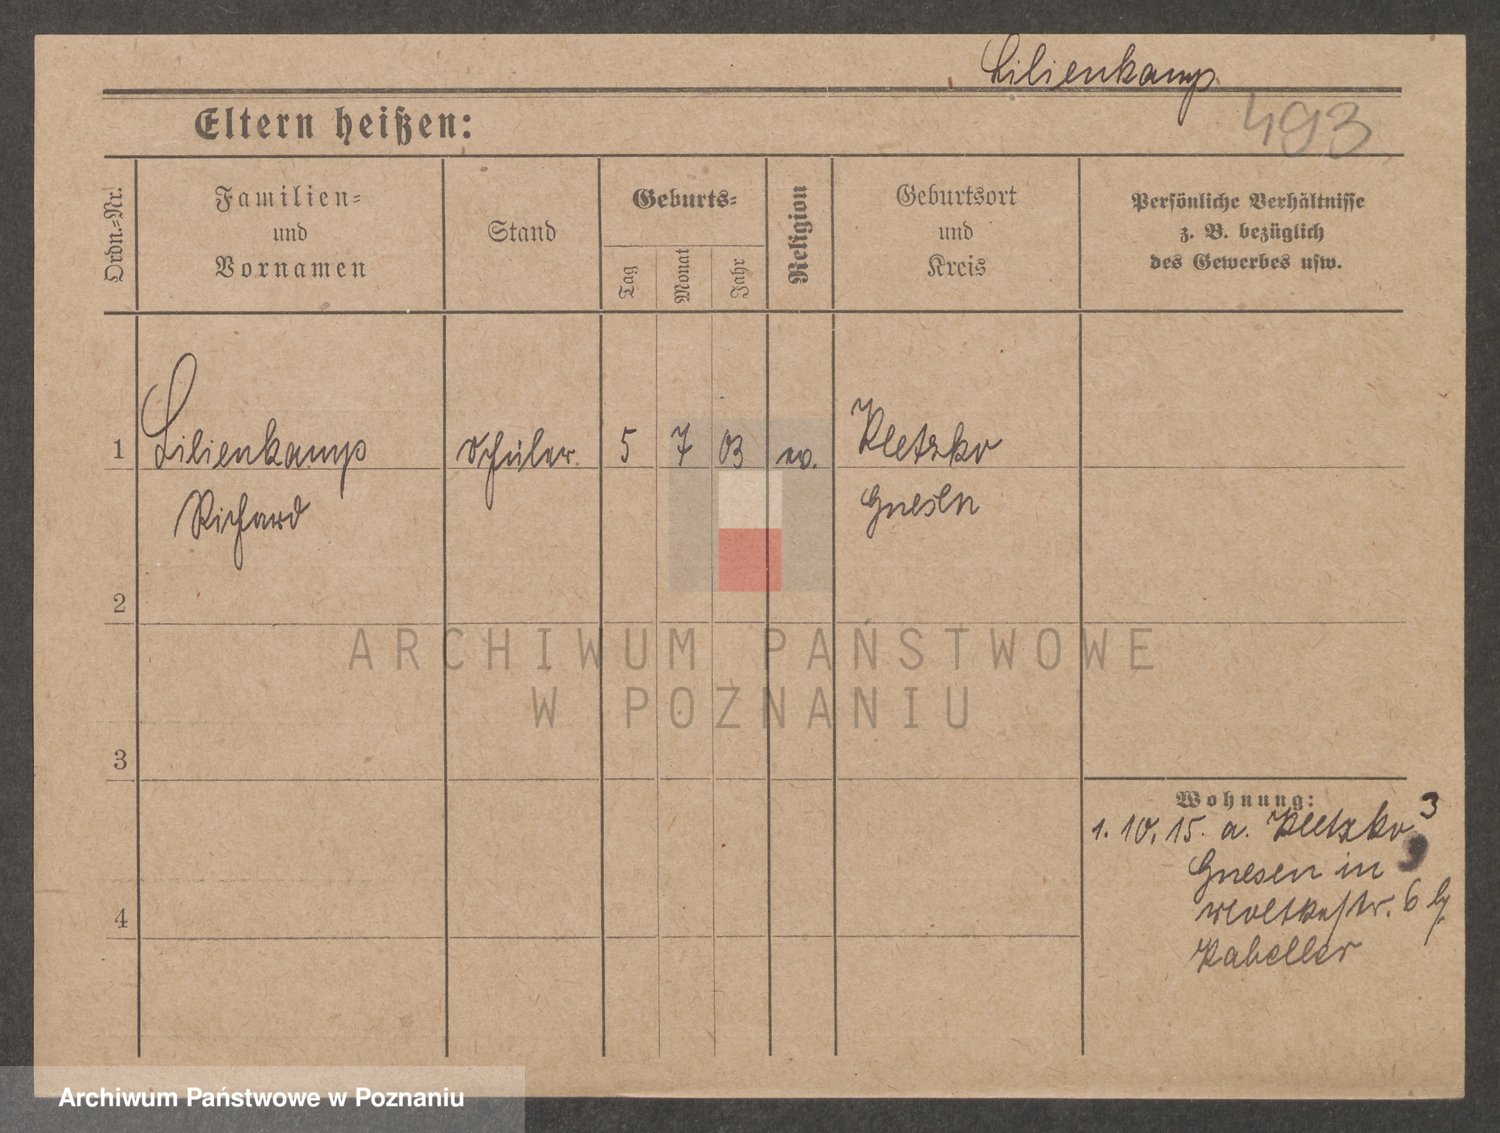 Lilienkamp
493
Eltern heißen:
Ordn.-Nr.
Familien-
und
Vornamen
Stand
Geburts-
Tag
Monat
Jahr
Religion
Geburtsort
und
Kreis
Persönliche Verhältnisse
z. B. bezüglich
des Gewerbes usw.
1 Lilienkamp Schüler 5 7 03 ev. Kletzko
Richard Gnesen
2
ARCHIWUM PAŃSTWOWE
W POZNANIU
3
Wohnung:
3
1. 10. 15. a. Kletzko
Gnesen in
Moltkestr. 6
4
Kabeller
Archiwum Państwowe w Poznaniu